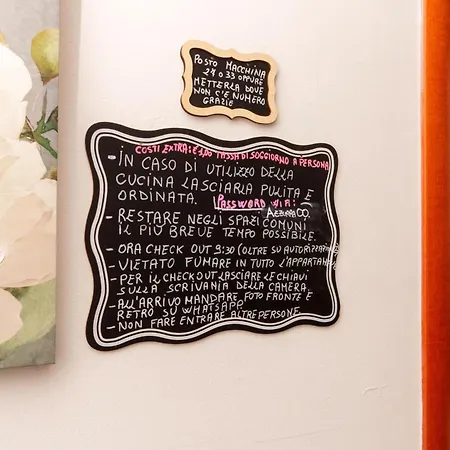 POSTO MACCHINA
27 O 33 OPPURE
METTERLA DOVE
NON C'È NUMERO
GRAZIE
COSTI EXTRA: TASSA DI SOGGIORNO A PERSONA
- IN CASO DI UTILIZZO DELLA
CUCINA LASCIARLA PULITA E
ORDINATA. PASSWORD WIFI:
- RESTARE NEGLI SPAZI COMUNI
IL PIÙ BREVE TEMPO POSSIBILE.
- ORA CHECK OUT 9:30 (OLTRE SU
- VIETATO FUMARE IN TUTTO L'APPARTAM
- PER IL CHECK OUT LASCIARE LE CHIAVI
SULLA SCRIVANIA DELLA CAMERA.
- ALL'ARRIVO MANDARE FOTO FRONTE E
RETRO SU WHATSAPP
- NON FARE ENTRARE ALTRE PERSONE